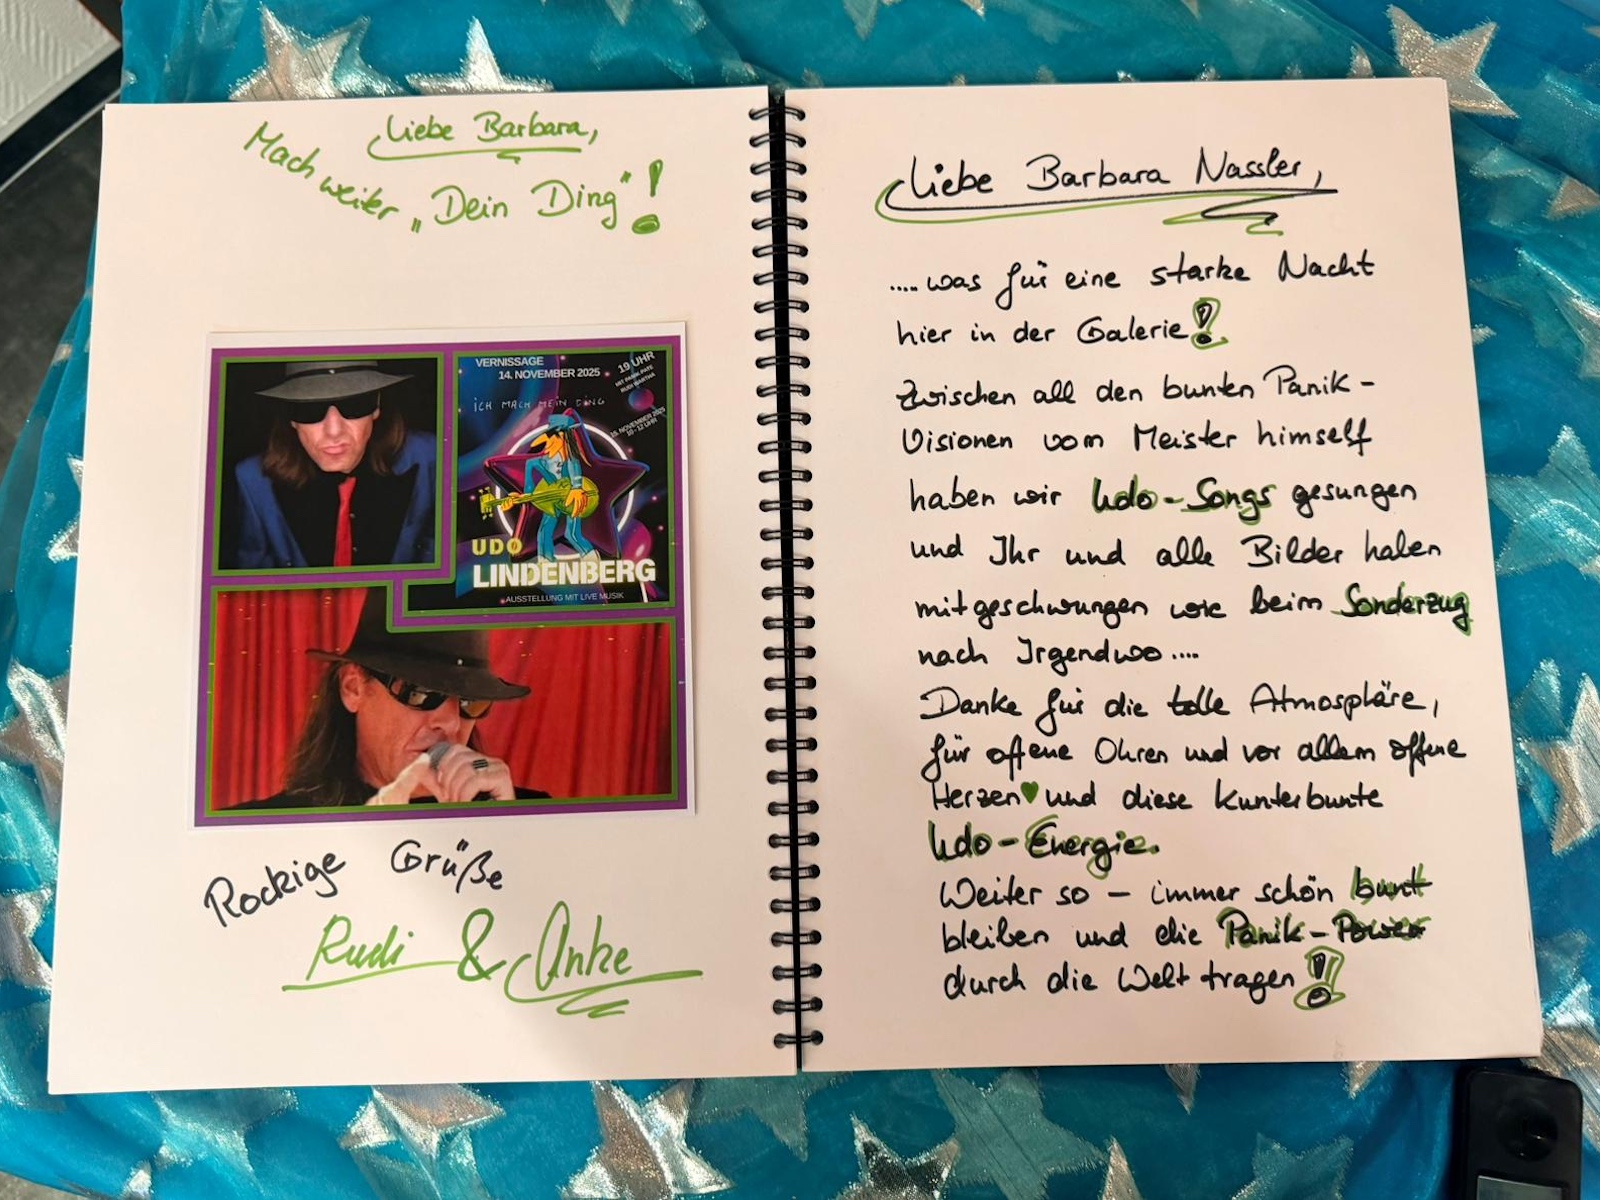 Liebe Barbara,
Mach weiter „Dein Ding"!
VERNISSAGE
14. NOVEMBER 2025
19 UHR
MIT PANIK-PATE
RUDI WARTHA
ICH MACH MEIN DING
15. NOVEMBER 2025
10 - 12 UHR
UDO
LINDENBERG
AUSSTELLUNG MIT LIVE MUSIK
Rockige Grüße
Rudi & Anke
Liebe Barbara Nassler,
.... was für eine starke Nacht
hier in der Galerie!
Zwischen all den bunten Panik-
Visionen vom Meister himself
haben wir Udo-Songs gesungen
und Ihr und alle Bilder haben
mitgeschwungen wie beim Sonderzug
nach Irgendwo....
Danke für die tolle Atmosphäre,
für offene Ohren und vor allem offene
Herzen♥ und diese kunterbunte
Udo-Energie.
Weiter so – immer schön bunt
bleiben und die Panik-Power
durch die Welt tragen!